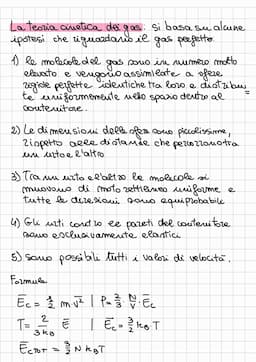 La teoria cinetica dei gas: si basa su alcune
ipotesi che riguardano il gas perfetto
1) le molecole del gas sono in numero molto
elevato e vengono assimilate a sfere
rigide perfette identiche tra loro e distribui
te uniformemente nello spazio dentro al
contenitore.
2) Le dimensioni delle sfere sono piccolissime,
rispetto alle distanze che percorrono tra
un urto e l'altro
3) Tra un urto e l'altro le molecole si
muovono di moto rettilineo uniforme e
tutte le direzioni sono equiprobabili
4) Gli urti contro le pareti del contenitore
sono esclusivamente elastici
5) sono possibili tutti i valori di velocità.
Formule
Ēc = 1/2 m·v̄² | P = 2/3 N/V · Ēc
T = 2/3kB Ē | Ēc = 3/2 kB T
Ēc TOT = 3/2 N kB T